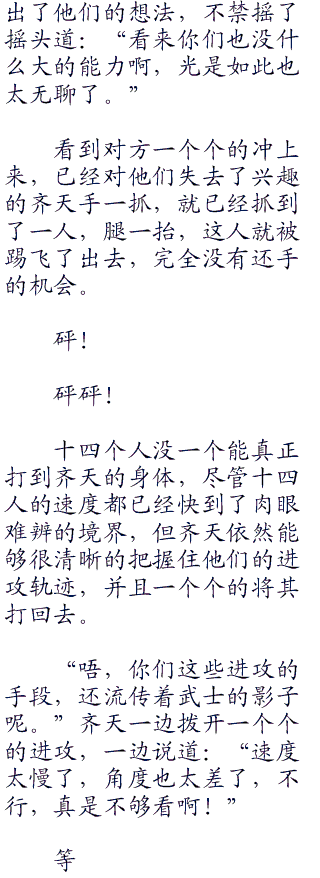 出了他们的想法，不禁摇了
摇头道：“看来你们也没什
么大的能力啊，光是如此也
太无聊了。”
看到对方一个个的冲上
来，已经对他们失去了兴趣
的齐天手一抓，就已经抓到
了一人，腿一抬，这人就被
踢飞了出去，完全没有还手
的机会。
砰！
砰砰！
十四个人没一个能真正
打到齐天的身体，尽管十四
人的速度都已经快到了肉眼
难辨的境界，但齐天依然能
够很清晰的把握住他们的进
攻轨迹，并且一个个的将其
打回去。
“唔，你们这些进攻的
手段，还流传着武士的影子
呢。”齐天一边拨开一个个
的进攻，一边说道：“速度
太慢了，角度也太差了，不
行，真是不够看啊！”
等